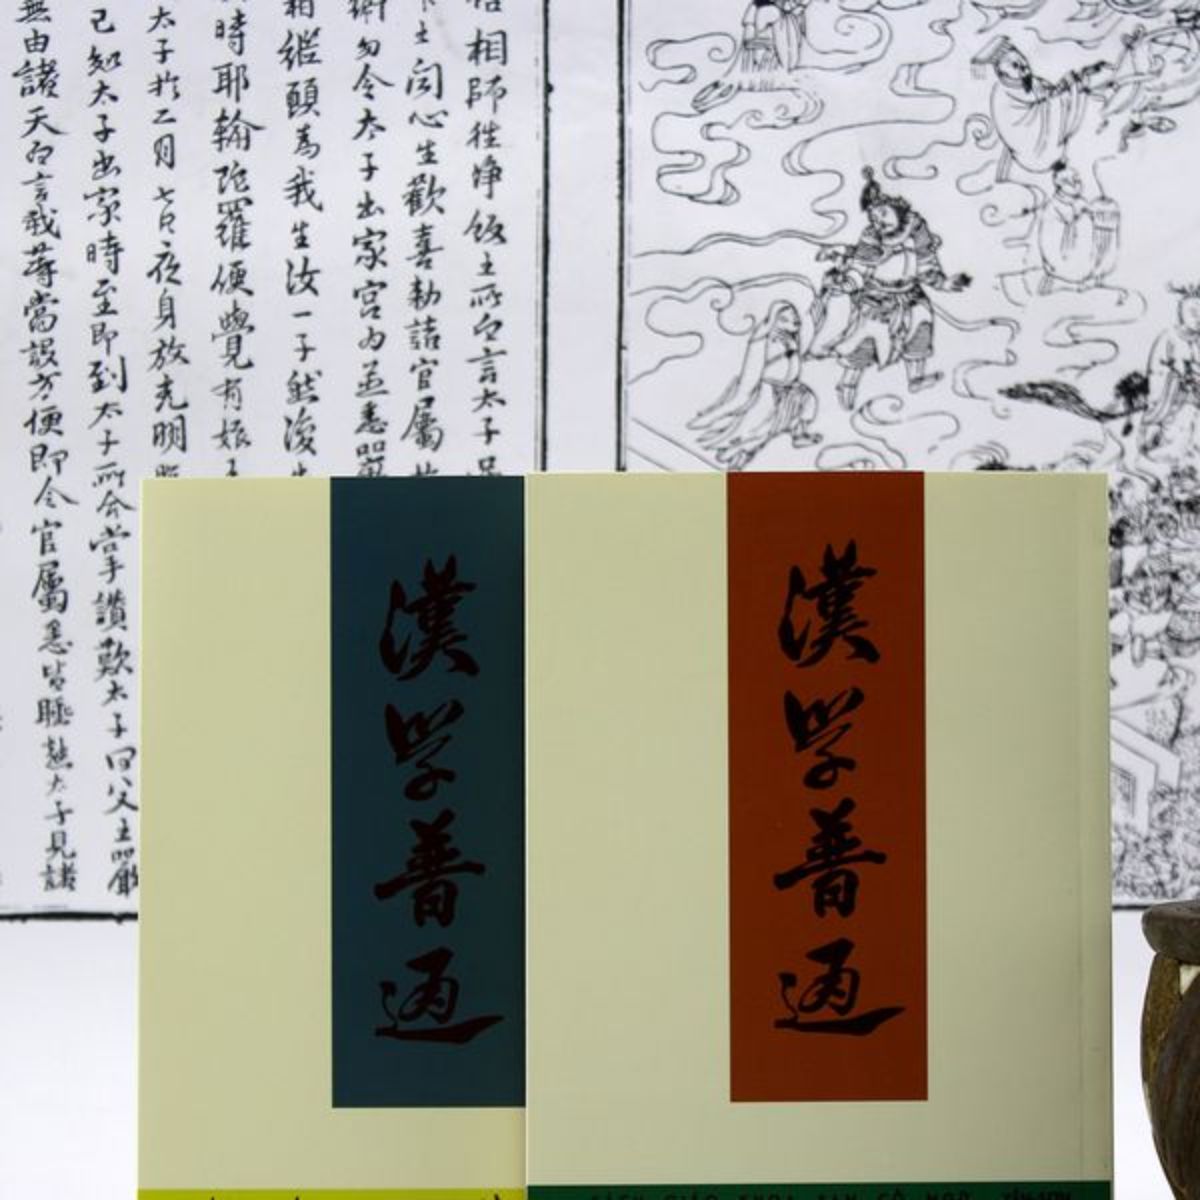 悟相師往淨飯王所白言太子是
王聞心生歡喜勅諸官屬
衛勿令太子出家宮內並悉嚴
相繼願為我生汝一子然後
時耶輸陀羅便覺有娠
太子於二月七日夜身放光明照
己知太子出家時至即到太子所合掌讚歎太子曰父王嚴
無由諸天白言我等當設方便即令官屬悉皆睡熟太子見諸
漢學普通
漢學普通